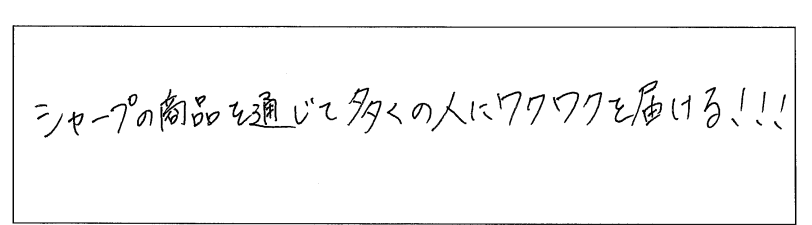 シャープの商品を通じて多くの人にワクワクを届ける!!!